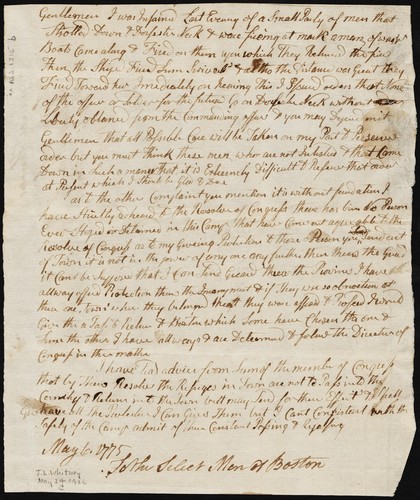 Gentlemen I was Informd Last Evening of a Small Party of men that
Strolld Down to Dorchester Neck & ware fireing at mark a man of warse
Boats Came along & Fired on them upon which they Returned the fire
then the Ships Fired Sum Tho the Distance was Great they
Fired Toward her Immediately on hearing this I Issued orders that None
of the offier or Soldier for the future Go on Dorchester Neck without
Liberty obtaned from the Commanding offier & you may Depend on it
Gentlemen that all Possable Care will be Taken on my Part to Preserve
order but you must Think these men who are not Inlisted & that Come
Down in such a manner that it is Extremely Difficult to Preserve that order
at Present which I think to be Gloo
as to the other Complaint you mention it is without fundation I
have Strictly adhered to the Resolve of Congress there has ben No Person
Ever Stoped or Detained in this Camp that have Come out agreeable to the
resolve of Congress as to my Giveing Protection to those Person you send out
of Town it is not in the power of any one any further then theare the Guard
it Cant be supposed that I Can Send Guard Threw the Provinc I have
allways offerd Protection then the Incampment & if they ware so obnoxious at
thare one Town whare they belonged thereto they ware afraid to Proceed I would
Give tham a Pass to Return to Boston which Some have Chosen the one &
Sum the other I have allways & are Determend to follow the Directions of
Congress in the matter
I have had advice from Sum of the members of Congress
that by Thare Resolve the Refuges in Town are not to Pass into the
Country & Return into the Town but may Send for thare Effects & Shall
have all the Protection I Can Give Them but I Cant Consistent with the
Safty of the Camp admit of thare Constant Passing & repassing
May 6. 1775
To the Select Men of Boston
T. L. Whitney
May 29 1926